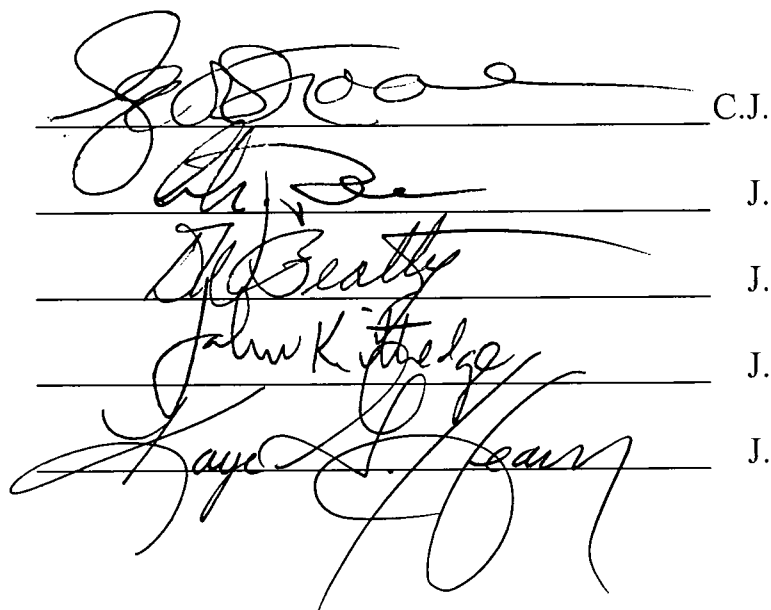 C.J.
J.
DW Beatty J.
John Kittredge J.
Kaye G. Hearn J.